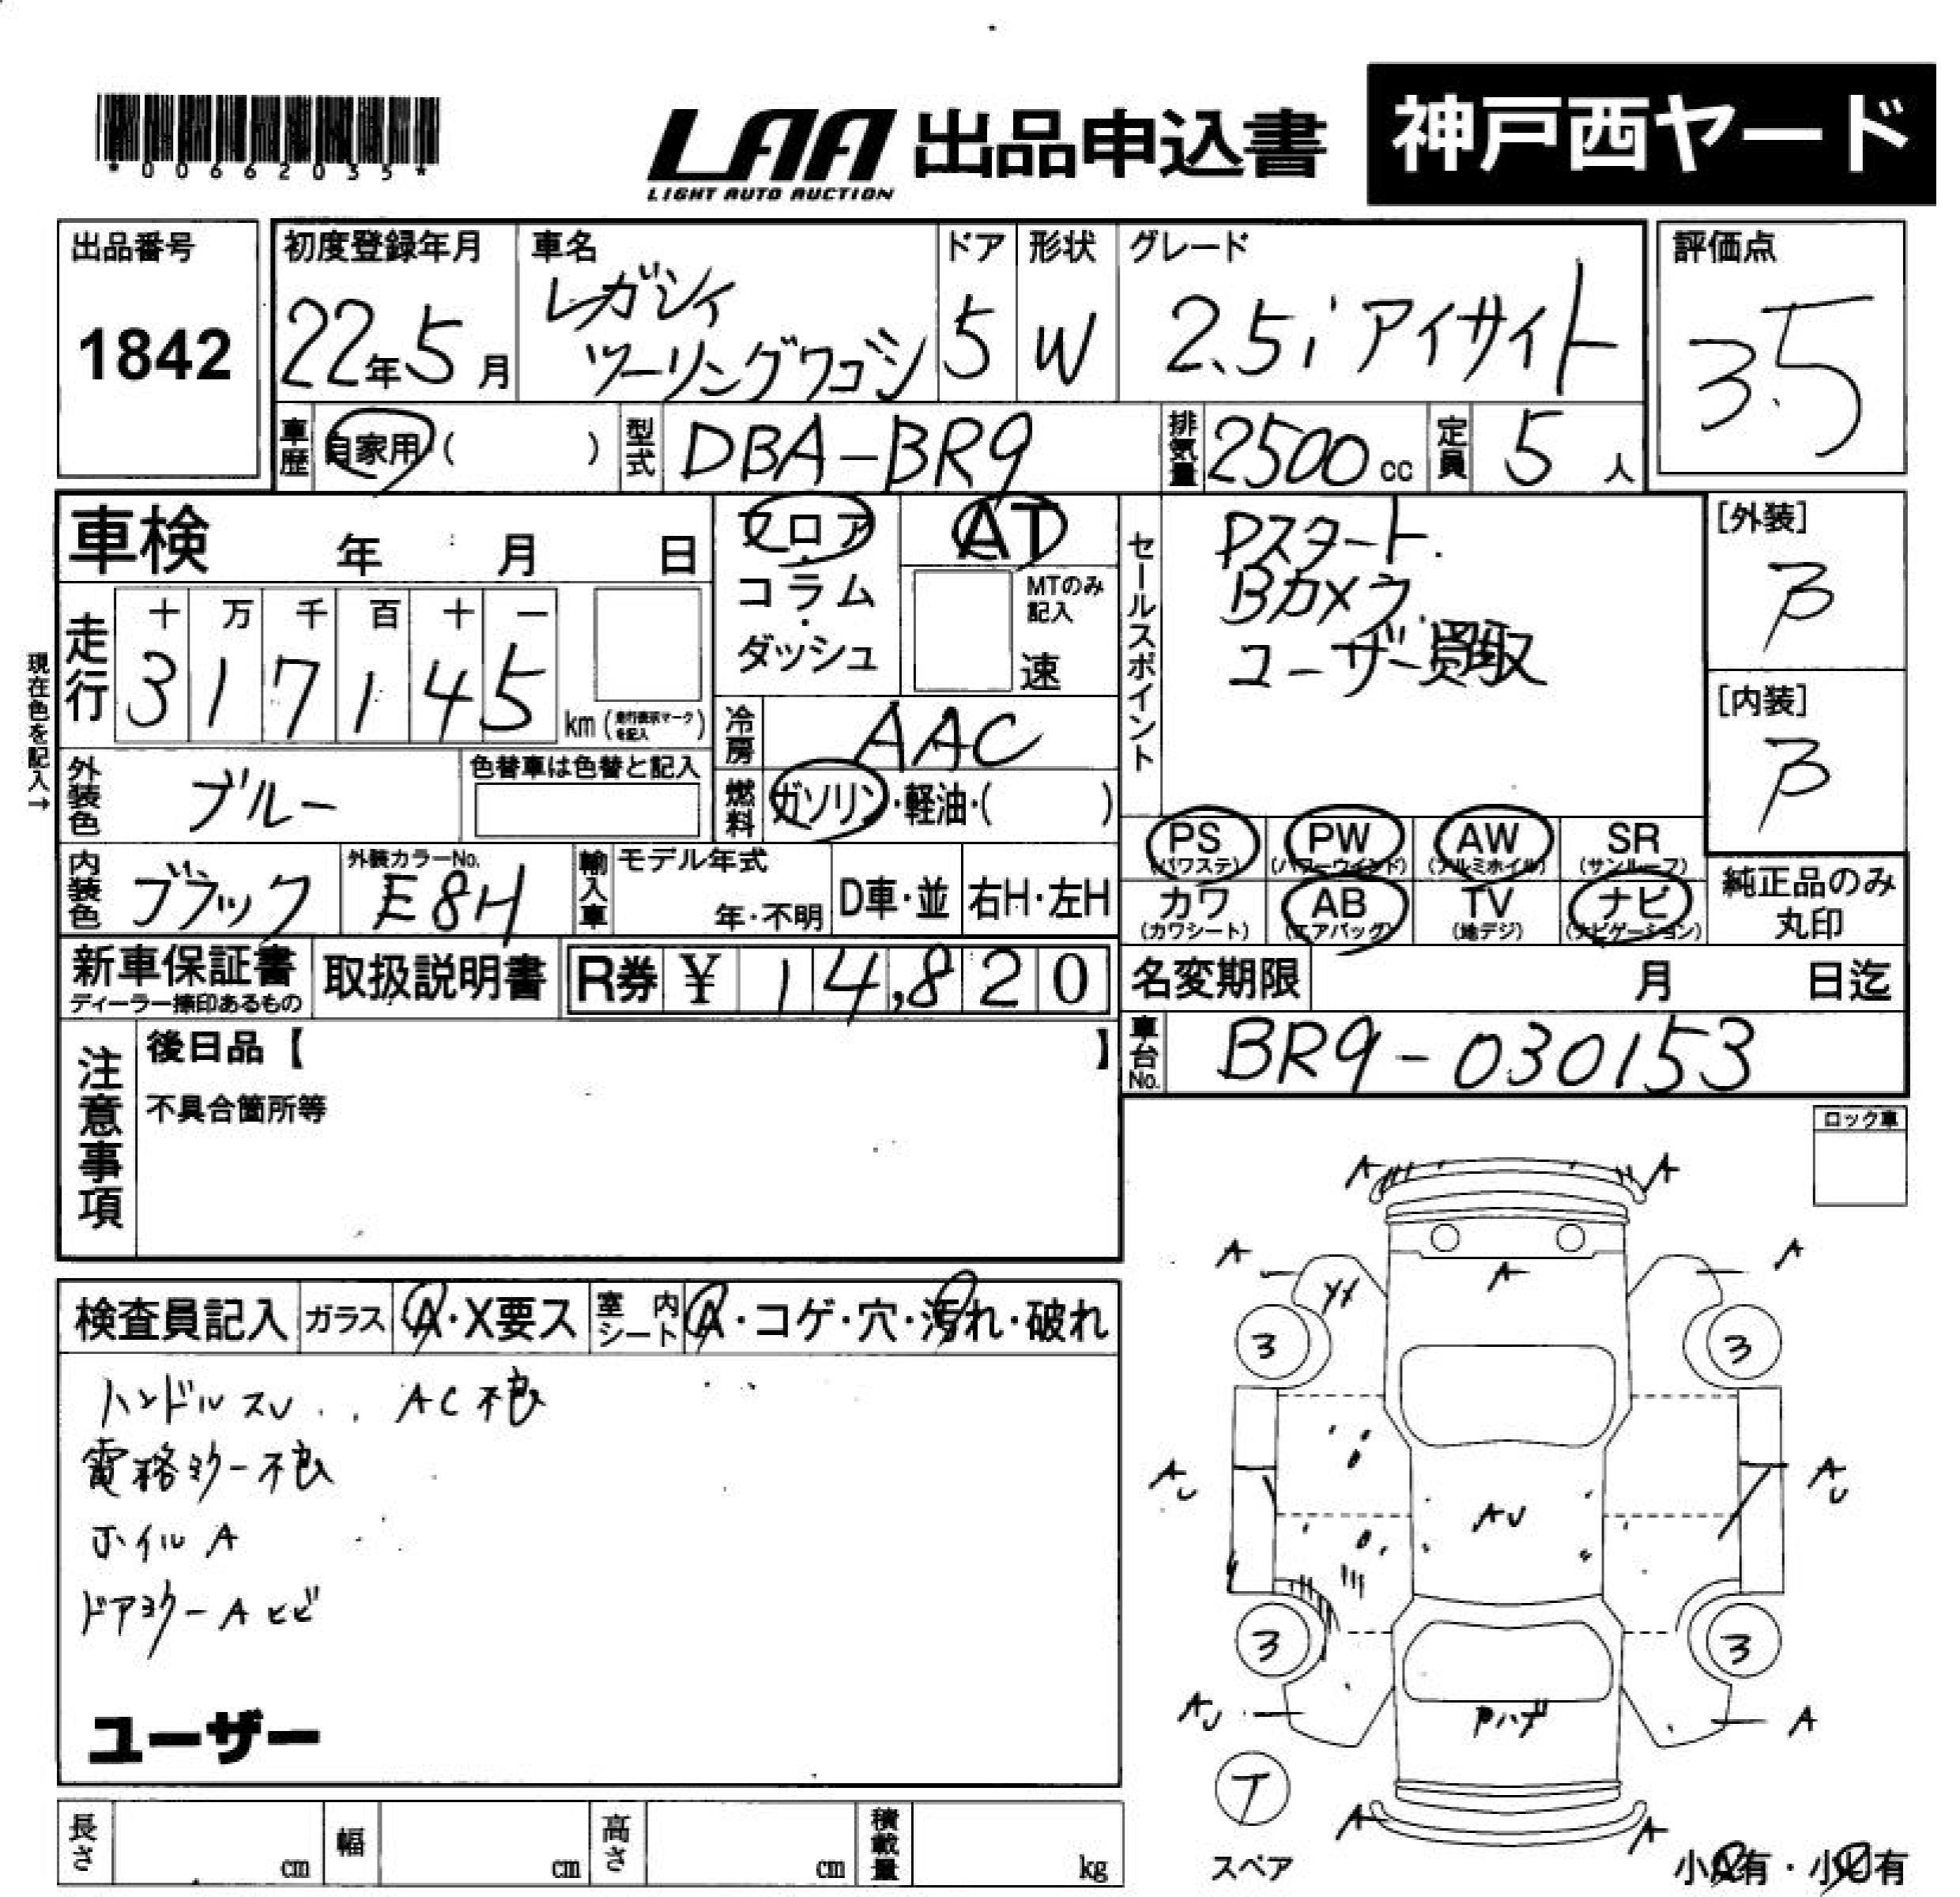 *00662035*
LAA 出品申込書 神戸西ヤード
LIGHT AUTO AUCTION
出品番号 初度登録年月 車名 ドア 形状 グレード 評価点
1842 22年5月 レガシィ ツーリングワゴン 5 W 2.5i アイサイト 3.5
車歴 自家用( ) 型式 DBA-BR9 排気量 2500cc 定員 5人
車検 年 月 日
フロア・コラム・ダッシュ
AT
MTのみ記入
速
セールスポイント
Pスタート.
Bカメラ
ユーザー買取
[外装]
B
[内装]
B
現在色を記入→
走行 十 万 千 百 十 一
3 1 7 1 4 5 km(走行表示マークを記入)
冷房 AAC
外装色 ブルー 色替車は色替と記入
燃料 ガソリン・軽油・( )
内装色 ブラック 外装カラーNo. E8H 輸入車 モデル年式 年・不明 D車・並 右H・左H
PS (パワステ) PW (パワーウインド) AW (アルミホイル) SR (サンルーフ)
カワ (カワシート) AB (エアバッグ) TV (地デジ) ナビ (ナビゲーション)
純正品のみ
丸印
新車保証書 ディーラー捺印あるもの 取扱説明書 R券 ¥ 14,820
名変期限 月 日迄
車台No. BR9-030153
注意事項
後日品【 】
不具合箇所等
ロック車
検査員記入 ガラス A・X要ス 室内シート A・コゲ・穴・汚れ・破れ
ハンドルスレ AC不良
電格ミラー不良
ホイルA
ドアミラーAヒビ
ユーザー
A A
A A
A
3 3
AU AU
AU
3 3
AU A
T
スペア
A A
小A有・小U有
長さ cm 幅 cm 高さ cm 積載量 kg